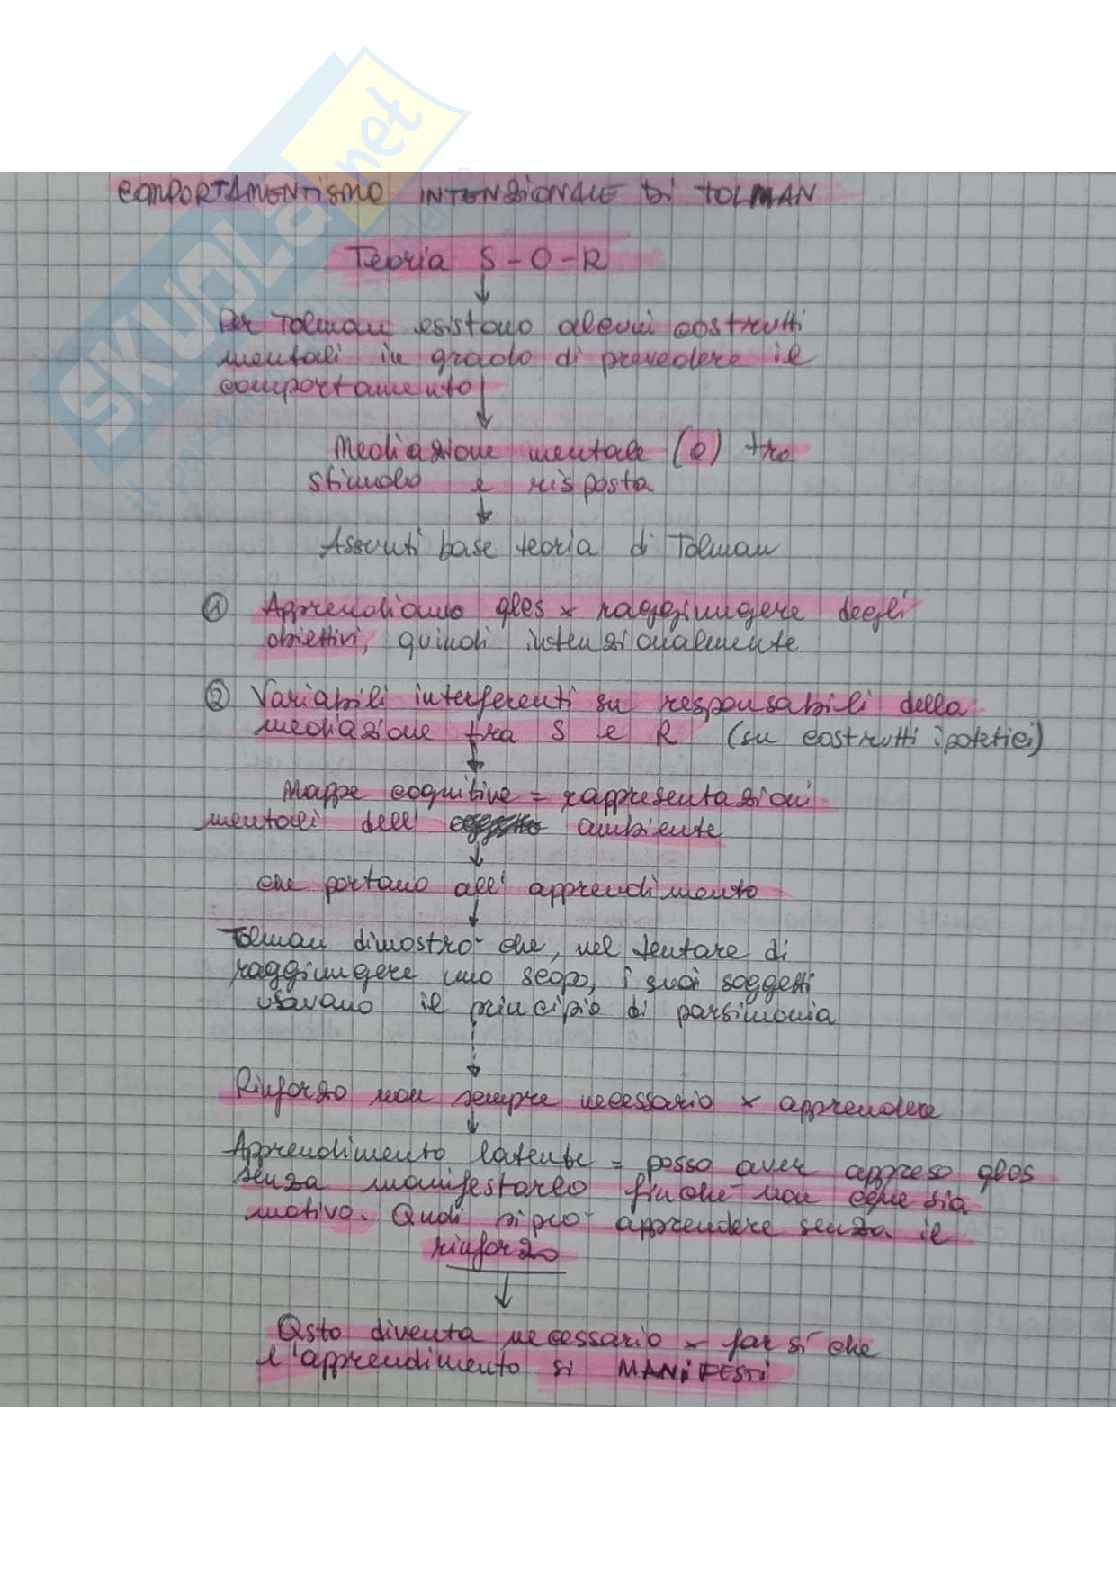 SKUOLA.net
COMPORTAMENTISMO INTENZIONALE DI TOLMAN
Teoria S-O-R
Per Tolman esistono alcuni costrutti
mentali in grado di prevedere il
comportamento
Mediazione mentale (O) tra
stimolo e risposta
Assunti base teoria di Tolman
① Apprendiamo qlcs x raggiungere degli
obiettivi, quindi intenzionalmente
② Variabili interferenti su responsabili della
mediazione tra S e R (su costrutti ipotetici)
Mappe cognitive = rappresentazioni
mentali dell' ambiente
che portano all' apprendimento
Tolman dimostrò che, nel tentare di
raggiungere uno scopo, i suoi soggetti
usavano il principio di parsimonia
Rinforzo non sempre necessario x apprendere
Apprendimento latente = posso aver appreso qlcs
senza manifestarlo finché non ce ne sia
motivo. Qudi si può apprendere senza il
rinforzo
Qsto diventa necessario x far sì che
l'apprendimento si MANIFESTI